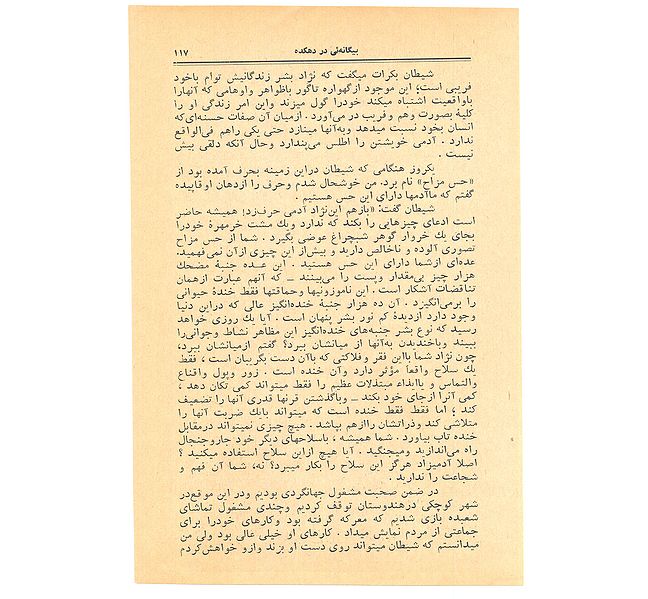 بیگانه‌ئی در دهکده
۱۱۷
شیطان بکرات میگفت که نژاد بشر زندگانیش توام باخود
فریبی است؛ این موجود ازگهواره تاگور باظواهر واوهامی که آنهارا
باواقعیت اشتباه میکند خودرا گول میزند واین امر زندگی او را
کلیهٔ بصورت وهم و فریب در می‌آورد . ازمیان آن صفات حسنه‌ای‌که
انسان بخود نسبت میدهد وبه‌آنها مینازد حتی یکی راهم فی‌الواقع
ندارد . آدمی خویشتن را اطلس می‌پندارد وحال آنکه دلقی بیش
نیست .
یکروز هنگامی که شیطان دراین زمینه بحرف آمده بود از
«حس مزاح» نام برد. من خوشحال شدم وحرف را ازدهان او قاپیده
گفتم که ماآدمها دارای این حس هستیم .
شیطان گفت: «بازهم این‌نژاد آدمی حرف‌زد؛ همیشه حاضر
است ادعای چیزهایی را بکند که ندارد ویك مشت خرمهرهٔ خودرا
بجای یك خروار گوهر شبچراغ عوضی بگیرد . شما از حس مزاح
تصوری آلوده و ناخالص دارید و بیش‌از این چیزی ازآن نمی‌فهمید.
عده‌ای ازشما دارای این حس هستید . این عـده جنبهٔ مضحك
هزار چیز بی‌مقدار وپست را می‌بینند ــ که آنهم عبارت ازهمان
تناقضات آشکار است . این ناموزونیها وحماقتها فقط خندهٔ حیوانی
را برمی‌انگیزد . آن ده هزار جنبهٔ خنده‌انگیز عالی که دراین دنیا
وجود دارد ازدیدهٔ کم نور بشر پنهان است . آیا یك روزی خواهد
رسید که نوع بشر جنبه‌های خنده‌انگیز این مظاهر نشاط وجوانی‌را
ببیند وباخندیدن به‌آنها از میانشان ببرد؟ گفتم ازمیانشان ببرد،
چون نژاد شما بااین فقر وفلاکتی که باآن دست بگریبان است ، فقط
یك سلاح واقعاً مؤثر دارد وآن خنده است . زور وپول واقناع
والتماس و یاایذاء مبتذلات عظیم را فقط میتواند کمی تکان دهد ،
کمی آنرا ازجای خود بکند ــ وباگذشتن قرنها قدری آنها را تضعیف
کند ؛ اما فقط فقط خنده است که میتواند بایك ضربت آنها را
متلاشی کند وذراتشان راازهم بپاشد . هیچ چیزی نمیتواند درمقابل
خنده تاب بیاورد . شما همیشه ، باسلاحهای دیگر خود جاروجنجال
راه می‌اندازید ومیجنگید . آیا هیچ ازاین سلاح استفاده میکنید ؟
اصلا آدمیزاد هرگز این سلاح را بکار میبرد؟ نه، شما آن فهم و
شجاعت را ندارید .
در ضمن صحبت مشغول جهانگردی بودیم ودر این موقع‌در
شهر کوچکی درهندوستان توقف کردیم وچندی مشغول تماشای
شعبده بازی شدیم که معرکه گرفته بود وکارهای خودرا برای
جماعتی از مردم نمایش میداد . کارهای او خیلی عالی بود ولی من
میدانستم که شیطان میتواند روی دست او بزند وازو خواهش‌کردم